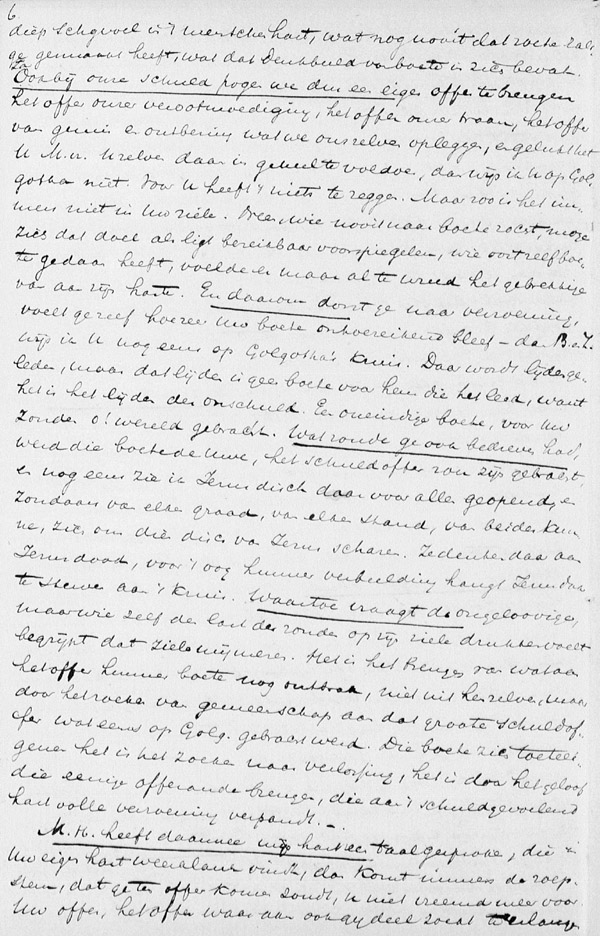 6
diep schgevoel in 't menschenhart, wat nog nooit dat zoete zal-
ge gesmaakt heeft, wat dat Denkbeeld van boete in zich bevat.
Ook bij onze schuld pogen we dus een eigen offer te brengen
het offer onzer verootmoediging, het offer onzer traan, het offer
van gemis en ontbering wat we ons zelven opleggen, en gelukt het
U M.H. U zelven daarin geheel te voldoen, dan wijs ik U op Gol-
gotha niet. Voor U heeft 't niets te zeggen. Maar zoo is het im-
mers niet in Uw ziele. Neen, wie nooit naar boete zocht, moge
zich dat doel als ligt bereikbaar voorspiegelen, wie ooit zelf boe-
te gedaan heeft, voelde er maar al te wreed het gebrekkige
van aan zijn harte. En daarom dorst ge naar verzoening,
voelt ge zelf hoezeer Uw boete ontoereikend bleef – dan B. Z.
wijs ik U nog eens op Golgotha's kruis. Daar wordt lijden ge-
leden, maar dat lijden is geen boete voor hem die het leed, want
het is het lijden der onschuld. Een oneindige boete, voor Uw
zonden o! wereld gebracht. Wat zonde ge ook bedreven had,
werd die boete de Uwe, het schuldoffer zou zijn gebracht,
en nog eens zie ik Jezus disch daar voor allen geopend, en
zondaars van elken graad, van elken stand, van beider kun-
ne, zich om dien disch van Jezus scharen. Ze denken daar aan
Jezus dood, voor 't oog hunner verbeelding hangt Jezus daar
te sterven aan 't kruis. Waartoe vraagt de ongeloovige,
maar wie zelf den last der zonden op zijn ziele drukken voelt
begrijpt dat zielemijmeren. Het is het Brengen van wat aan
het offer hunner boete nog ontbrak, niet uit henzelven, maar
door het zoeken van gemeenschap aan dat groote schuldof-
fer wat eens op Golg. gebracht werd. Die boete zich toeëi-
genen het is het zoeken naar verlossing, het is door het geloof
die eenige offerande brengen, die aan 't schuldgevoelend
hart volle verzoening verpandt. –
M.H. heeft daarmee mijn hart een taal gesproken, die in
Uw eigen hart weerklank vindt, dan komt immers de roep-
stem, dat ge ten offer komen zoudt, U niet vreemd meer voor.
Uw offer, het offer waar aan ook gij deel zoudt erlangen